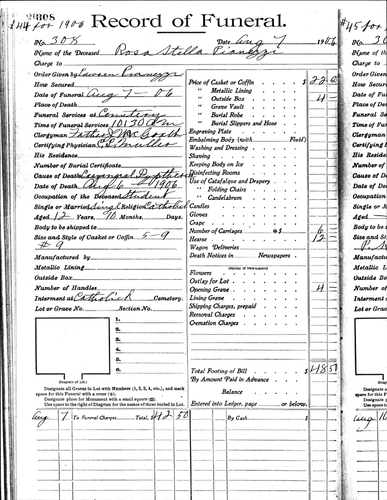 #44 for 1906
Record of Funeral.
No. 308 Date Aug 7 1906
Name of the Deceased Rosa Stella Pianezzi
Charge to
Order Given by Pianezzi
How Secured
Date of Funeral Aug 7-06
Place of Death
Funeral Services at Cemetery
Time of Funeral Services 10 1/20 A M
Clergyman Father
Certifying Physician C E Muller
His Residence
Number of Burial Certificate
Cause of Death Laryngeal Diptheria
Date of Death Aug 6 - 1906
Occupation of the Deceased Student
Single or Married Single Religion Catholic
Aged 12 Years, 10 Months, Days.
Body to be shipped to
Size and Style of Casket or Coffin 5-9
#9
Manufactured by
Metallic Lining
Outside Box
Number of Handles
Interment at Catholick Cemetery.
Lot or Grave No. Section No.
1.
2.
3.
4.
5.
6.
(Diagram of Lot.)
Designate all Graves in Lot with Numbers (1, 2, 3, 4, etc.), and mark
space for this Funeral with a cross (+).
Designate place for Monument with a small square (□).
Use space to the right of Diagram for the names of those buried in Lot.
Price of Casket or Coffin $ 22
" Metallic Lining
" Outside Box 4 -
" Grave Vault
" Burial Robe
" Burial Slippers and Hose
Engraving Plate
Embalming Body (with Fluid)
Washing and Dressing
Shaving
Keeping Body on Ice
Disinfecting Rooms
Use of Catafalque and Drapery
" Folding Chairs
" Candelabrum
Candles
Gloves
Crape
Number of Carriages @ $ 6
Hearse 12 -
Wagon Deliveries
Death Notices in Newspapers
(Names of Newspapers)
Flowers
Outlay for Lot
Opening Grave 4 -
Lining Grave
Shipping Charges, prepaid
Removal Charges
Cremation Charges
Total Footing of Bill $ 48 5
By Amount Paid in Advance
Balance
Entered into Ledger, page or below.
Aug 7 To Funeral Charges Total $ 42 50 By Cash $
#45 for
No.
Name of the
Charge to
Order Given
How Secured
Date of Fun
Place of De
Funeral Serv
Time of Fun
Clergyman
Certifying P
His Resid
Number of B
Cause of De
Date of Dea
Occupation
Single or Ma
Aged
Body to be
Size and Sty
Manufactur
Metallic Lin
Outside Box
Number of
Interment a
Lot or Grav
Designat
space for t
Designat
Use spac
Aug 10